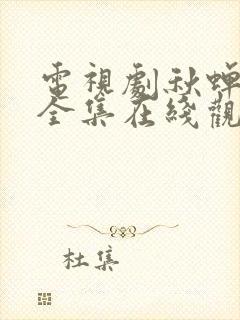 電視劇秋蟬
全集在綫觀
杜集